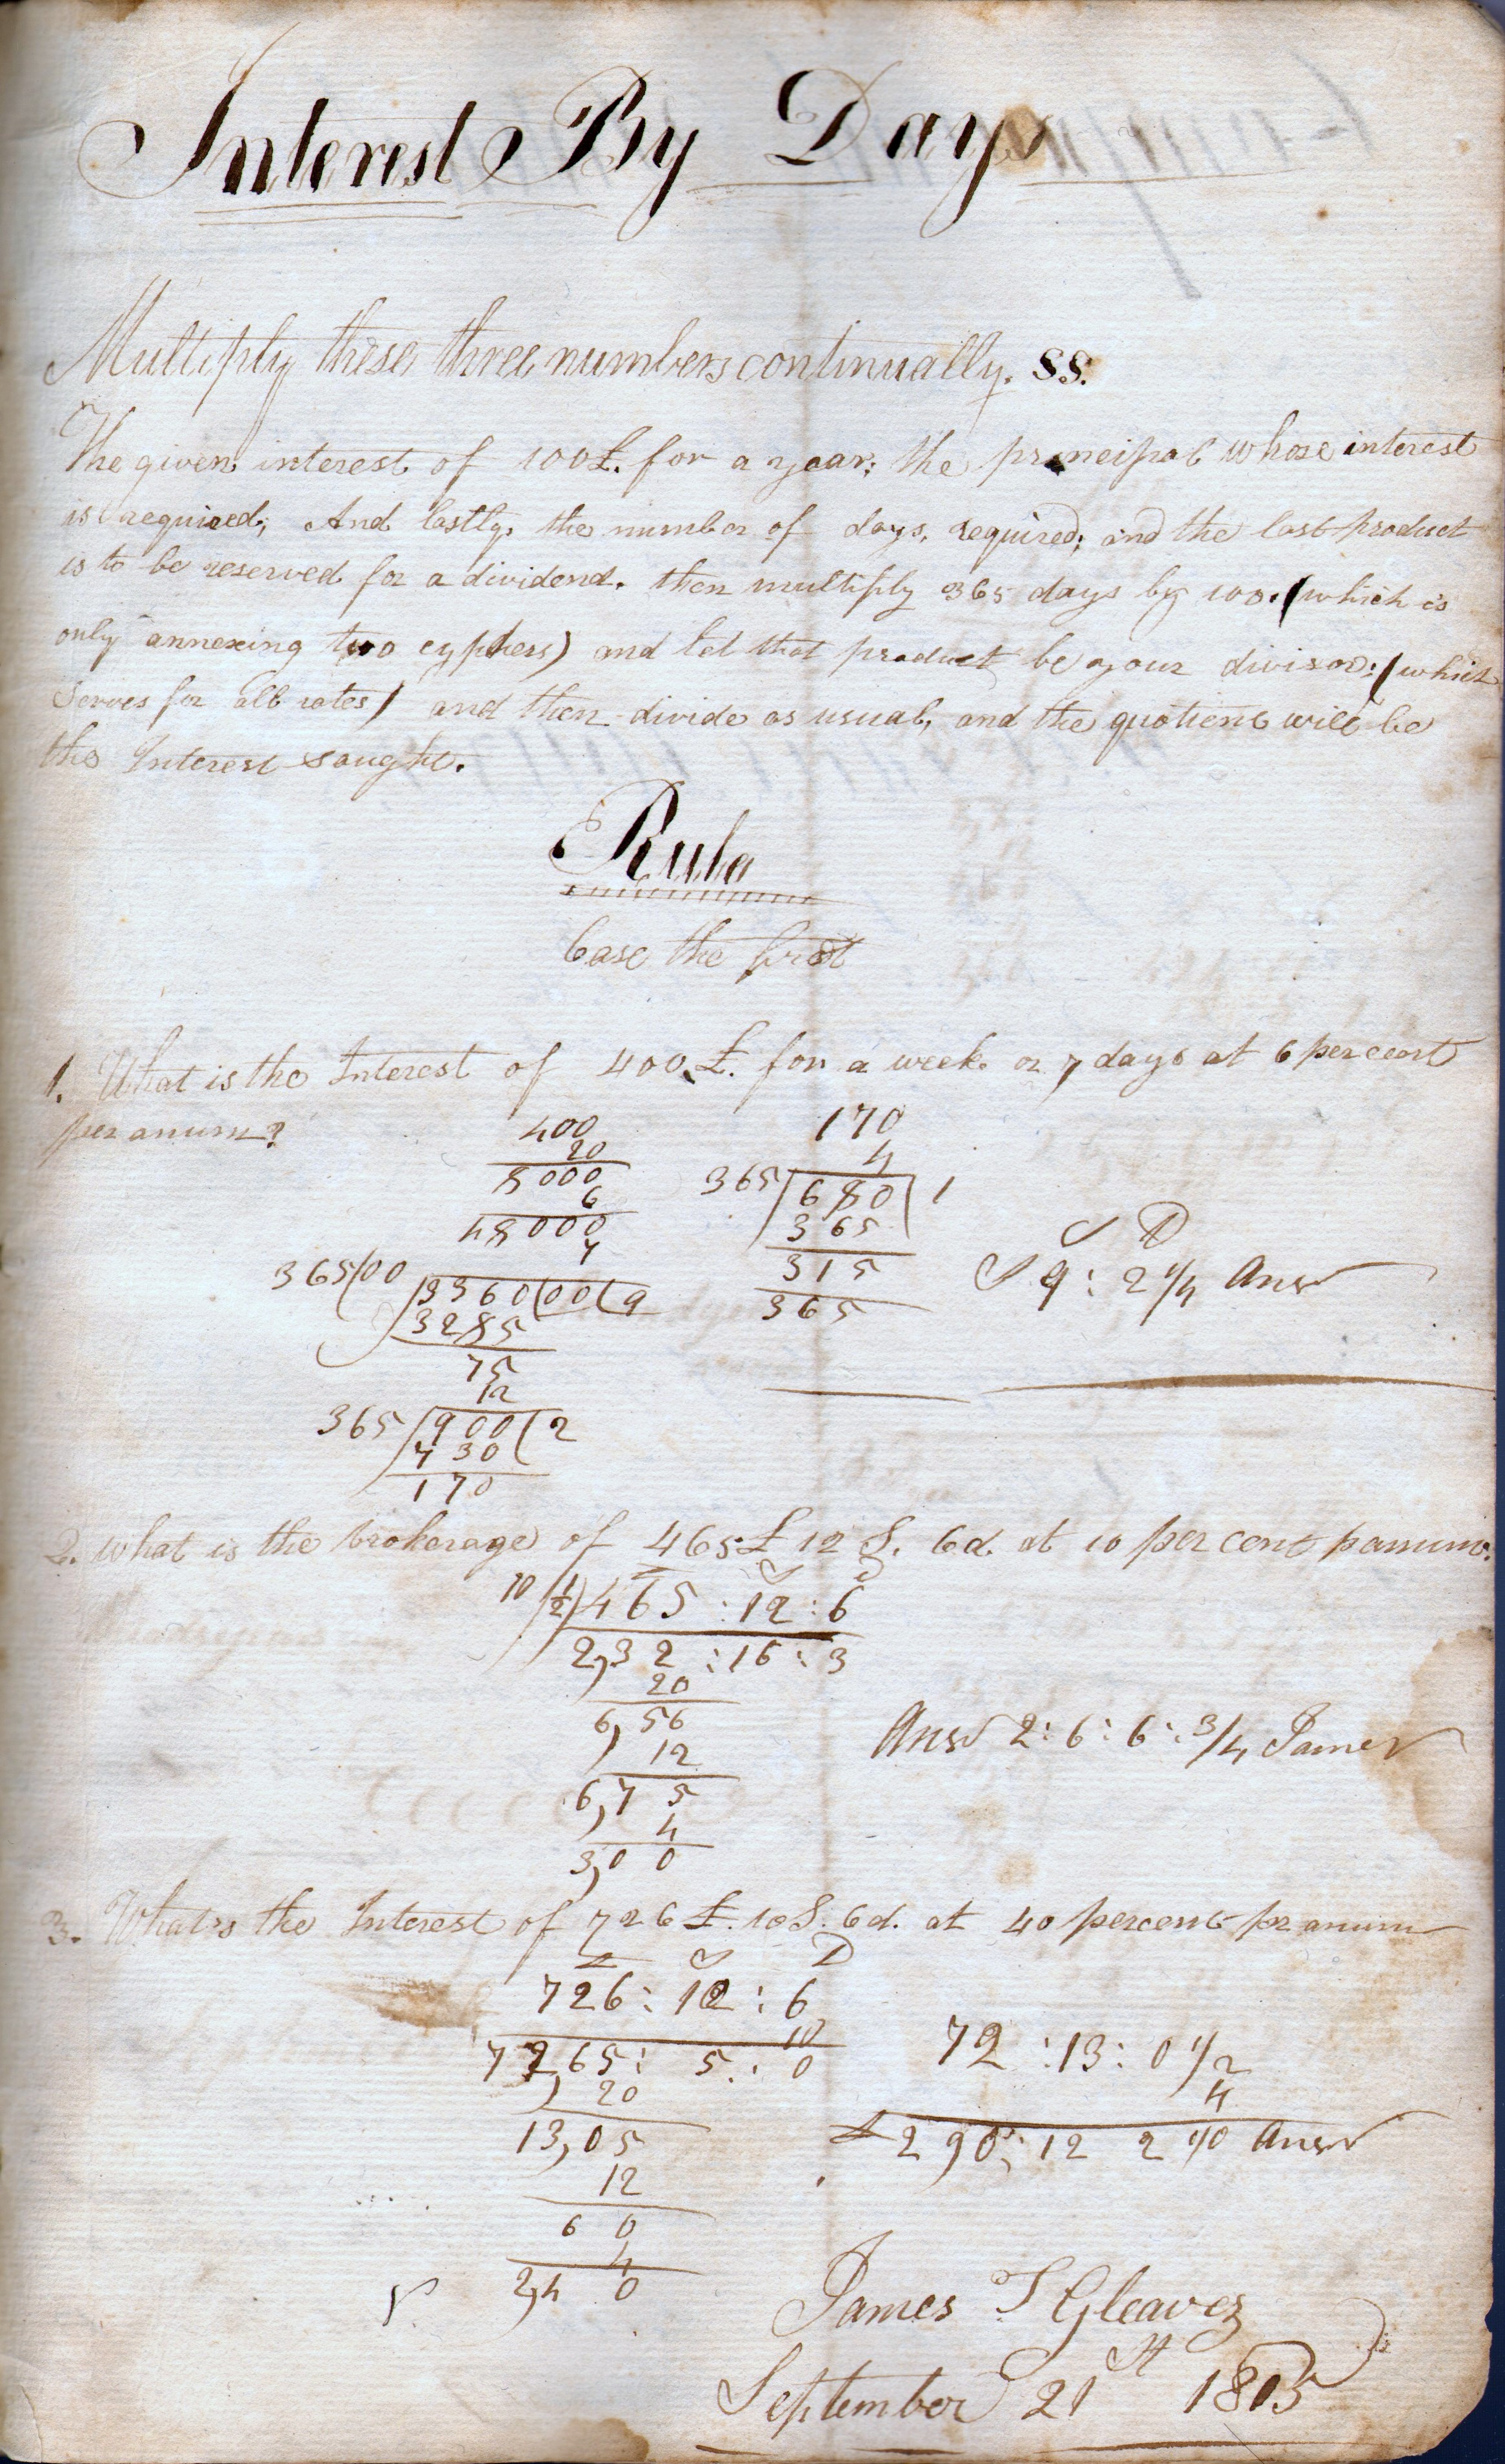 Interest By Days
Multiply these three numbers continually. SS.
The given interest of 100£. for a year; the principal whose interest
is required; And lastly, the number of days, required; and the last product
is to be reserved for a dividend. then multiply 365 days by 100. (which is
only annexing two cyphers) and let that product be your divisor: (which
serves for all rates) and then divide as usual, and the quotient will be
the Interest sought.
Rule
Case the first
1. What is the Interest of 400£. for a week or 7 days at 6 per cent
per anum?
400
20
8000
6
48000
7
365(00
3360(00(9
3285
75
12
365 900(2
730
170
170
4
365 680 1
365
315
365
S D
S 9: 2 1/4 Answ
2. what is the brokerage of 465£ 12 S. 6d. at 10 per cent p annum.
10 1/2 465 : 12 : 6
2,32 : 16 : 3
20
6,56
12
6,75
4
3,00
Answ 2: 6: 6: 3/4 James
3. What's the Interest of 726£. 10S. 6d. at 40 percent pr anum
£ S D
726: 10 : 6
10
7265: 5: 0
20
13,05
12
60
4
2,40
72 :13: 0 1/2
4
£290: 12 2 4/0 Answ
James T Gleaves
September 21st 1805